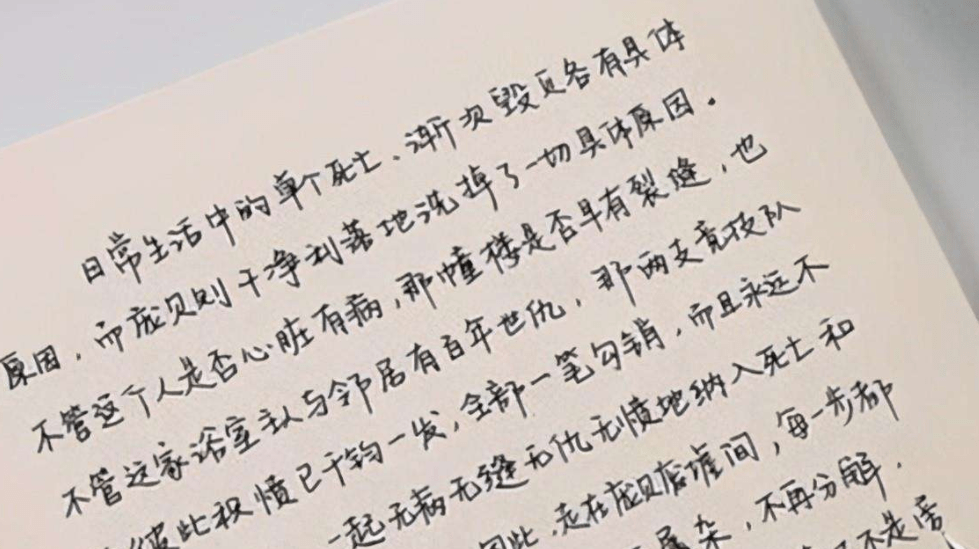 日常生活中的单个死亡、渐次毁圮各有具体
原因，而庞贝则干净利落地洗掉了一切具体原因。
不管这个人是否心脏有病，那幢楼是否早有裂缝，也
不管这家浴室主人与邻居有百年世仇，那两支竞技队
彼此积愤已千钧一发，全部一笔勾销，而且永远不
一起无病无缝无仇无愤地纳入死亡和
因此，走在庞贝废墟间，每一步都
杂，不再分解，
不是旁